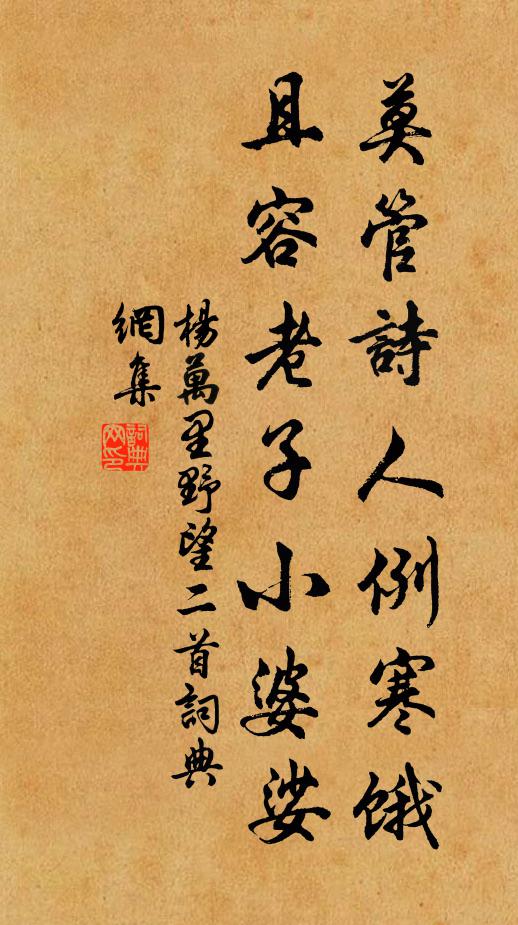 莫管詩人例寒餓
且容老子小婆娑
楊萬里野望二首詞典
網集
詞典
网印